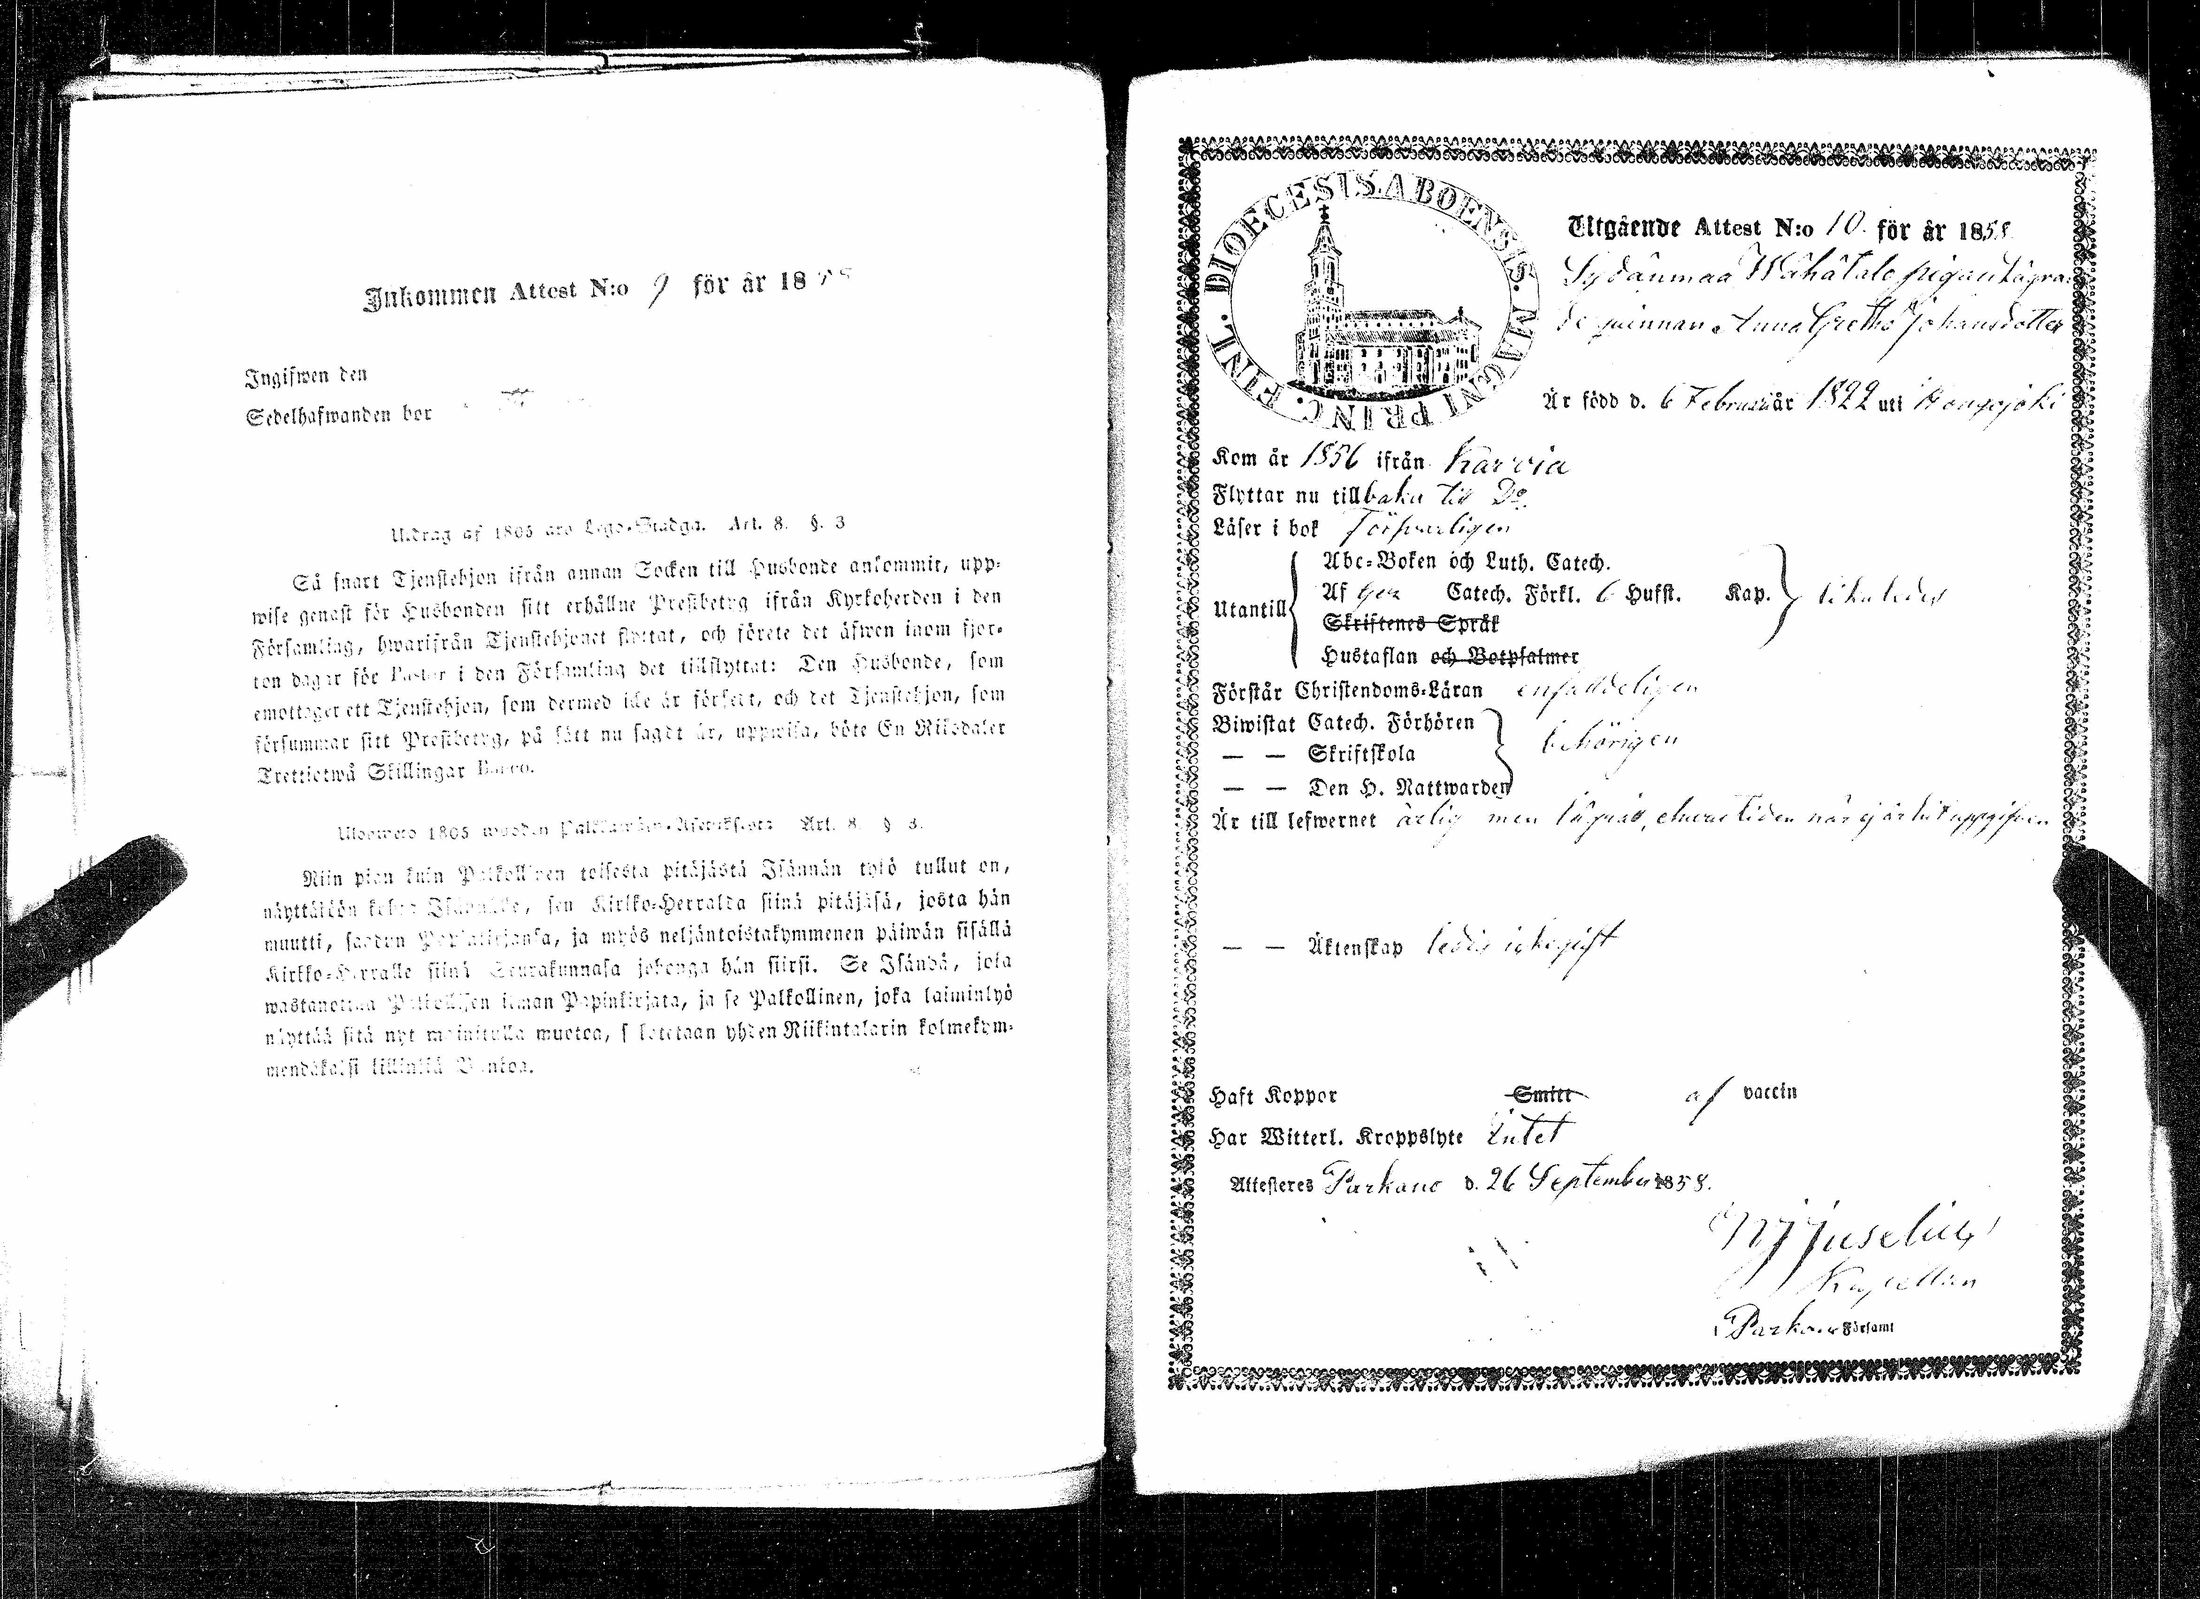 Inkommen Attest N:o 9 för år 1858
Ingifwen den
Sedelhafwanden bor
Utdrag af 1805 års Lego-Stadga. Art. 8. §. 3
Så snart Tjenstehjon ifrån annan Socken till Husbonde ankommit, upp-
wise genast för Husbonden sitt erhållne Prestbetyg ifrån Kyrkoherden i den
Församling, hwarifrån Tjenstehjonet flyttat, och förete det äfwen inom fjor-
ton dagar för Pastor i den Församling det tillflyttat: Den Husbonde, som
emottager ett Tjenstehjon, som dermed icke är försedt, och det Tjenstehjon, som
försummar sitt Prestbetyg, på sätt nu sagdt är, uppwisa, böte En Riksdaler
Trettiotwå Skillingar Banco.
1805 wuoden Art. 8. § 3.
Niin pian kuin Palkollinen toisesta pitäjästä Isännän työ tullut on,
näyttäköön kohta Isännälle, sen Kirkko-Herralda siinä pitäjäsä, josta hän
muutti, saadun Papinkirjansa, ja myös neljäntoistakymmenen päiwän sisällä
Kirkko-Herralle siinä Seurakunnasa johonga hän siirsi. Se Isändä, joka
wastanottaa Palkollisen ilman Papinkirjata, ja se Palkollinen, joka laiminlyö
näyttää sitä nyt mainitulla muotoa, sakotetaan yhden Riikintalarin kolmekym-
mendäkaksi killinkiä Bankoa.
DIOECESIS ABOENSIS. MAGNI PRINC. FINL.
Utgående Attest N:o 10. för år 1858.
Sydänmaa Wähätalo pigan Lägra-
de qvinnan Anna Greta Johansdotter
Är född d. 6 Februari år 1822 uti Kougojoki
Kom år 1856 ifrån Karvia
Flyttar nu tillbaka till Do.
Läser i bok försvarligen
Utantill
Abc-Boken och Luth. Catech.
Af Catech. Förkl. 6 Hufst. Kap. likaledes
Skriftenes Språk
Hustaflan och Botpsalmer
Förstår Christendoms-Läran enfaldeligen
Biwistat Catech. Förhören
— — Skriftskola behörigen
— — Den H. Nattwarden
Är till lefwernet ärlig men lägrad, ehuru tiden när ej är hit uppgifven
— — Äktenskap ledig icke gift
Haft Koppor Smitt af vaccin
Har Witterl. Kroppslyte Intet
Attesteres Parkano d. 26 September 1858.
Juselius
Kapellan
Parkano Församl